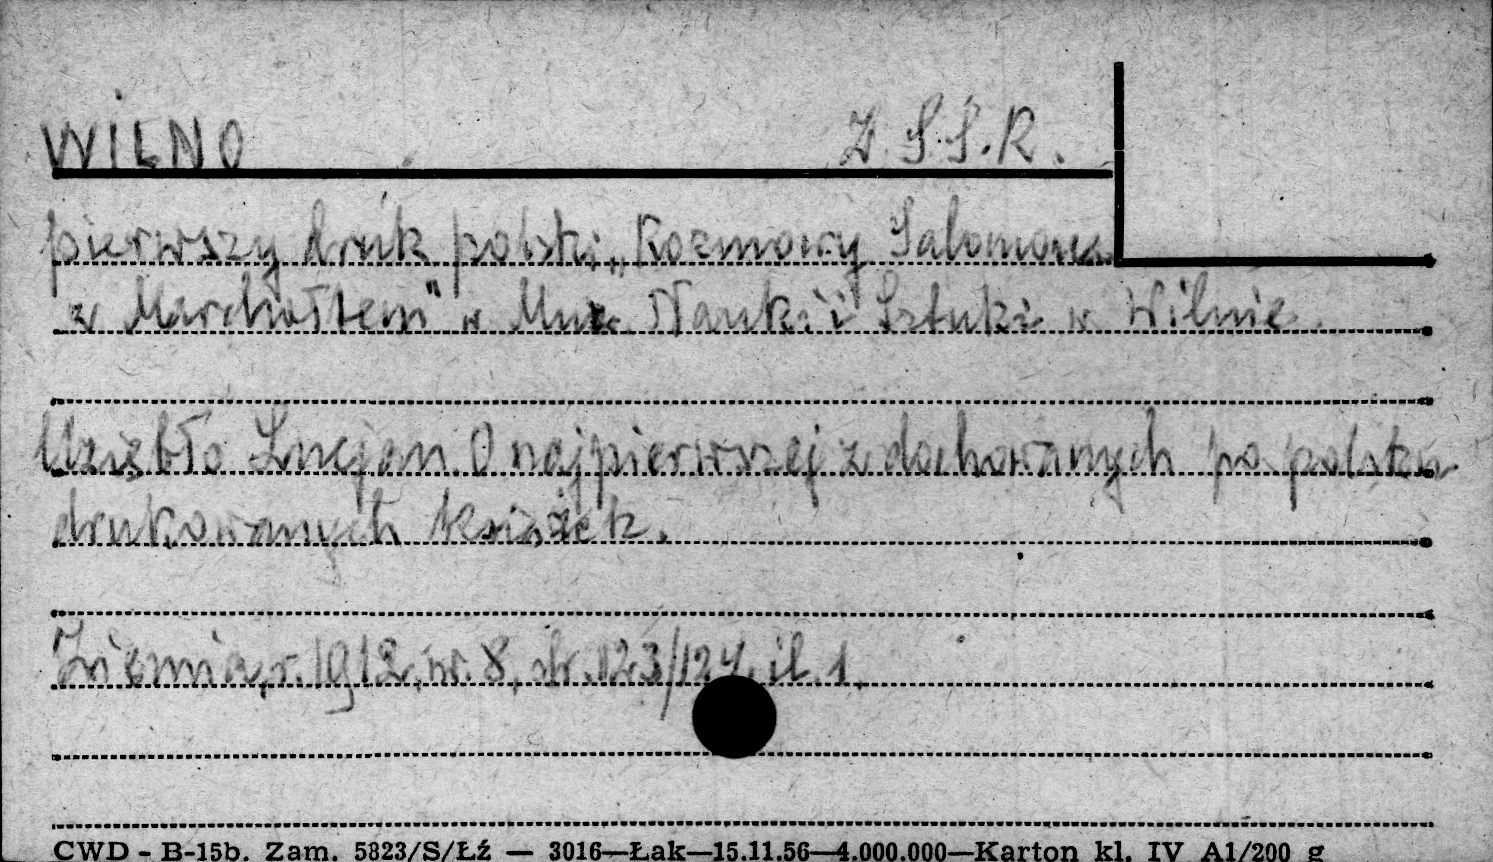 WILNO Z.S.S.R.
pierwszy druk polski „Rozmowy Salomona
z Marchołtem" w Muz. Nauki i Sztuki w Wilnie
Uziębło Lucjan. O najpierwszej z dochowanych po polsku
drukowanych książek.
Ziemia, r. 1912, nr. 8, str. 123/124, il. 1.
CWD - B-15b. Zam. 5823/S/Łź — 3016—Łak—15.11.56—4.000.000—Karton kl. IV A1/200 g